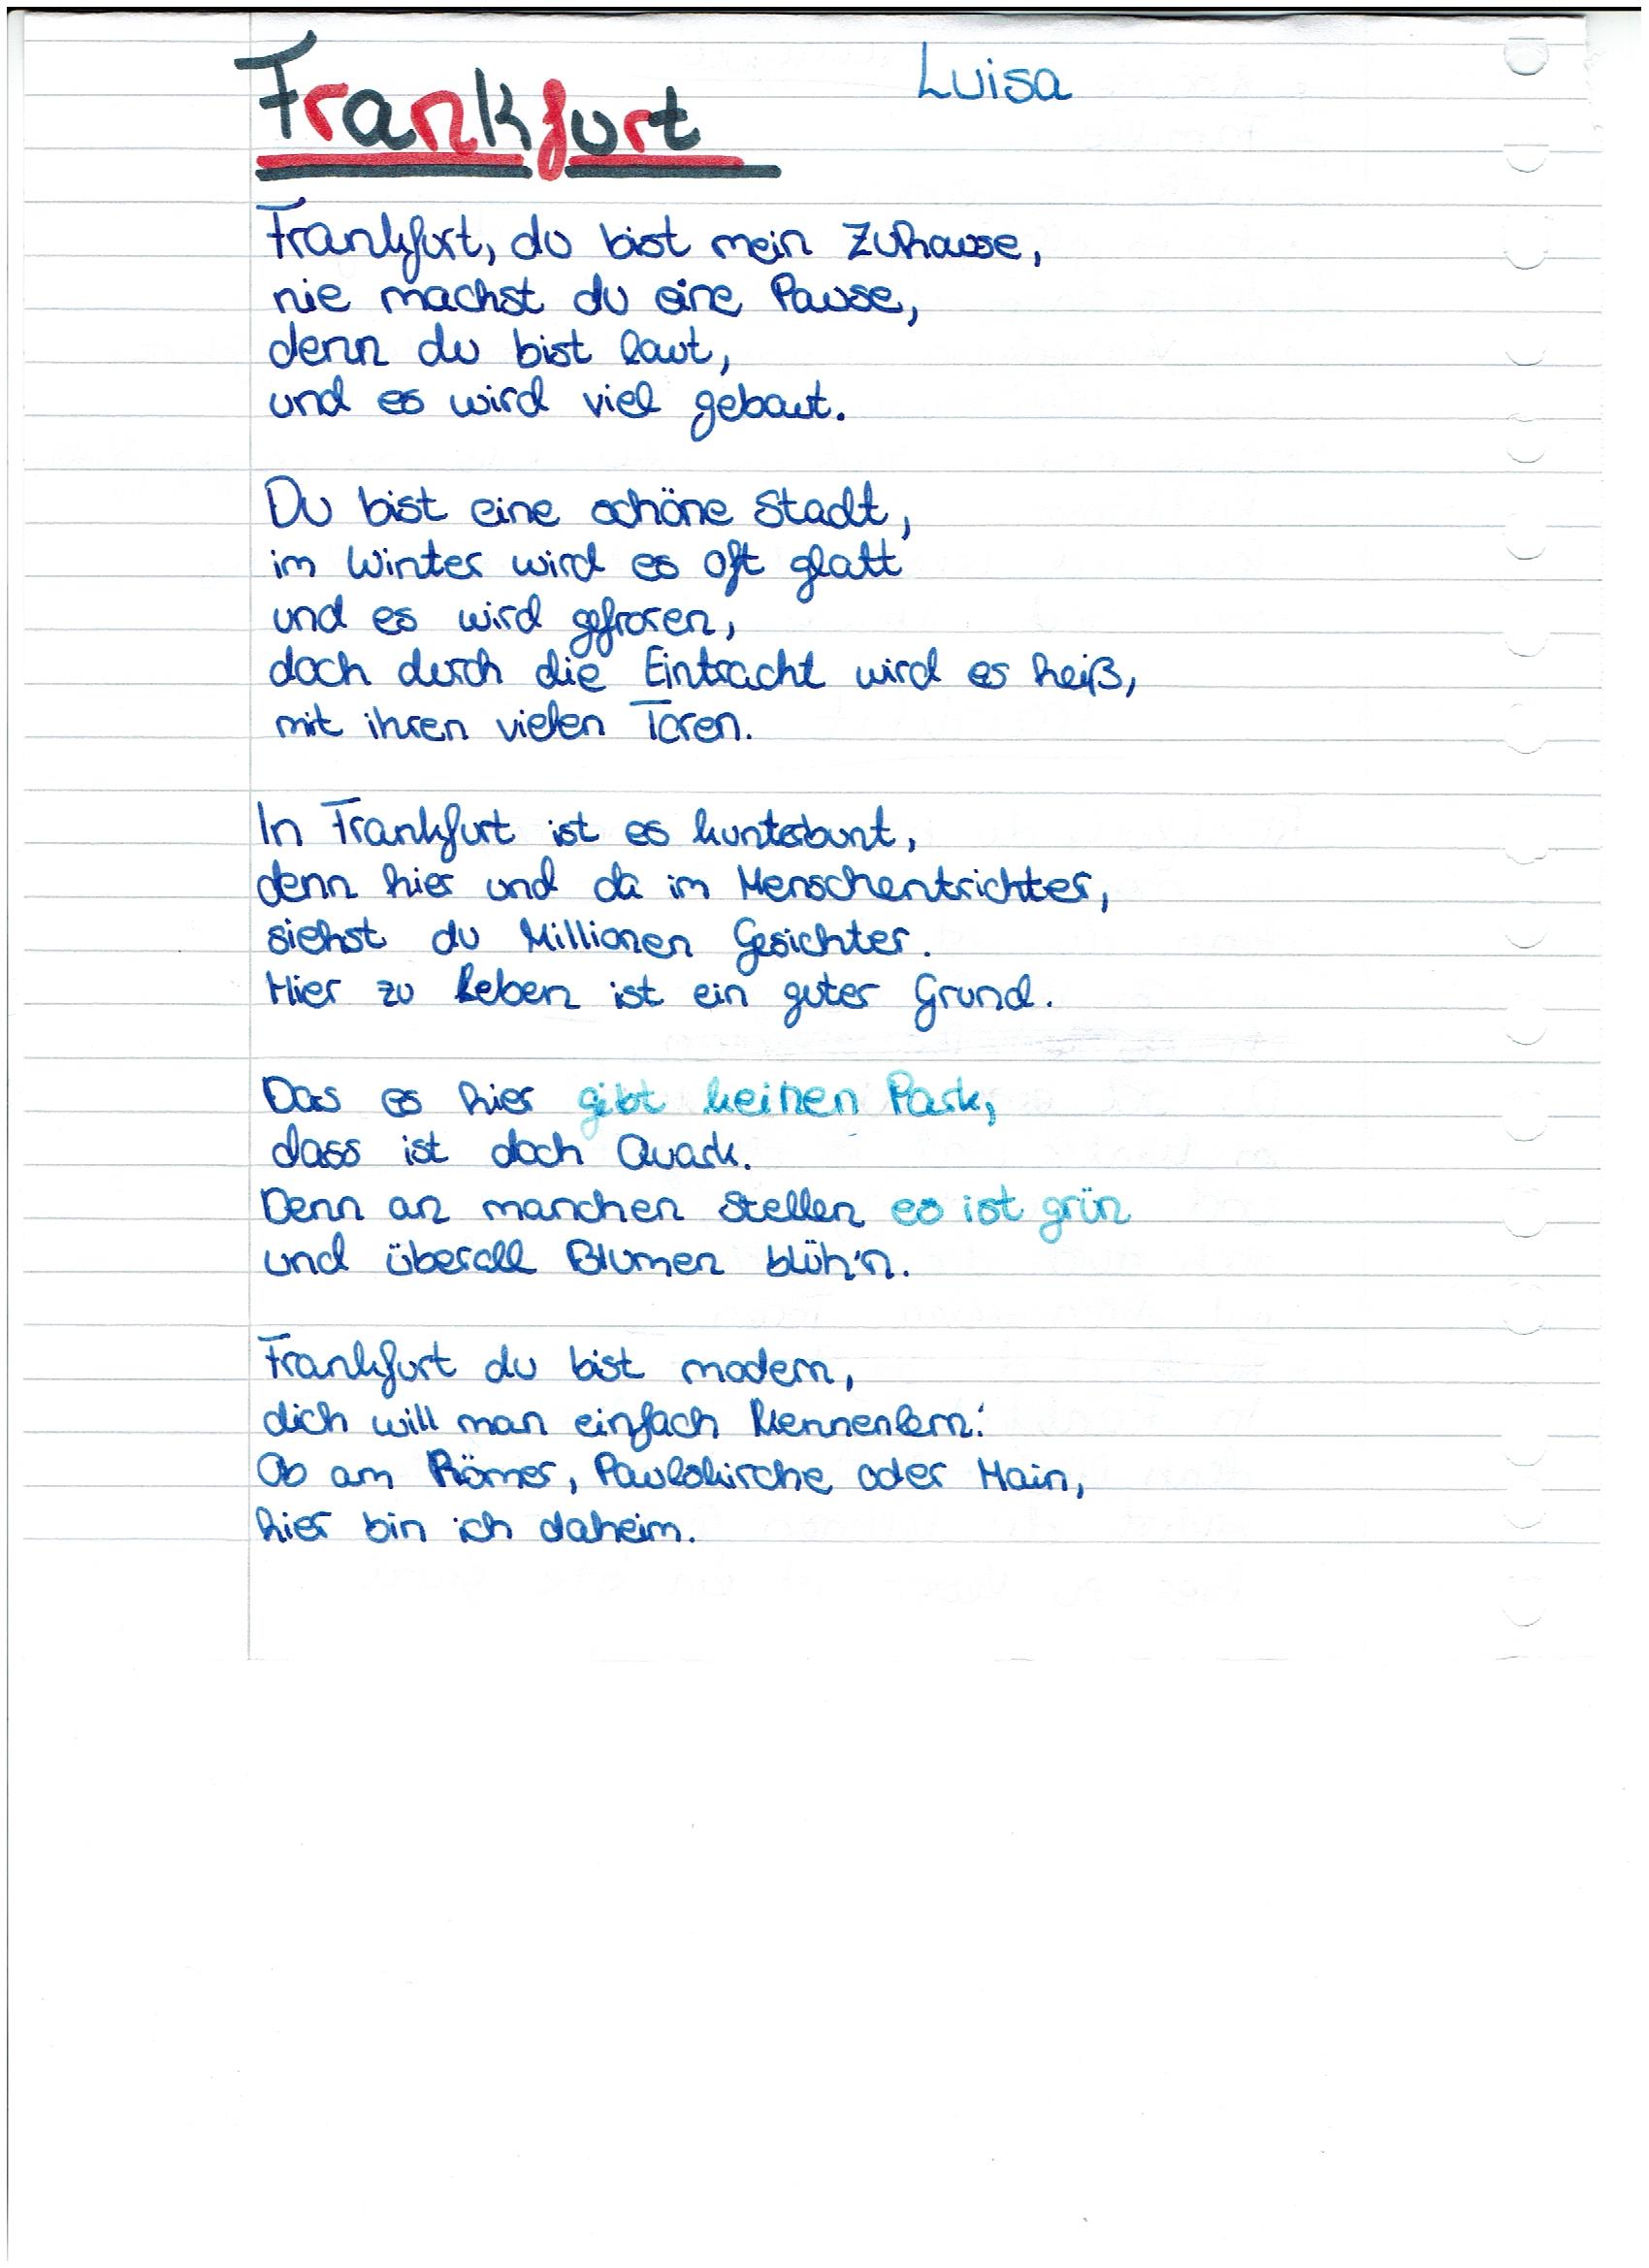 Frankfurt
Luisa
Frankfurt, du bist mein Zuhause,
nie machst du eine Pause,
denn du bist laut,
und es wird viel gebaut.
Du bist eine schöne Stadt,
im Winter wird es oft glatt
und es wird gefroren,
doch durch die Eintracht wird es heiß,
mit ihren vielen Toren.
In Frankfurt ist es kunterbunt,
denn hier und da im Menschentrichter,
siehst du Millionen Gesichter.
Hier zu Leben ist ein guter Grund.
Das es hier gibt keinen Park,
dass ist doch Quark.
Denn an manchen Stellen es ist grün
und überall Blumen blüh'n.
Frankfurt du bist modern,
dich will man einfach Kennenlern!
Ob am Römer, Paulskirche oder Main,
hier bin ich daheim.